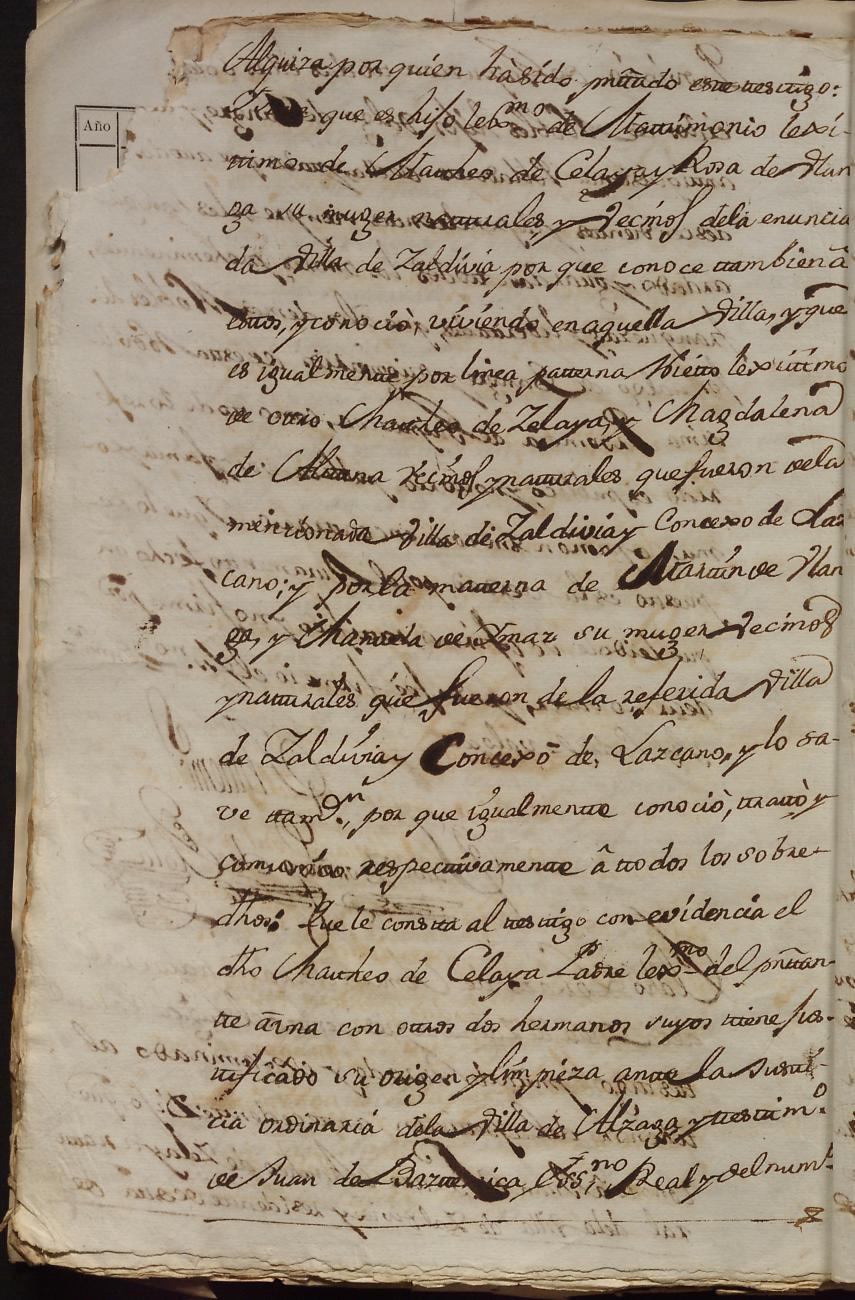 Alquiza por quien hà sido pñtado este testigo:
que es hijo lexmo de Mattrimonio lexi-
ttimo de Matheo de Celaya y Rosa de Ylan
ga su muger natturales, y Vecinos dela enuncia
da Villa de Zaldivia por que conoce ttambien â
estos, y conociò, viviendo en aquella Villa, y que
es igualmente por linea patterna Nietto lexittimo
de otro Matheo de Zelaya, y Magdalena
de Vecinos y natturales que fueron dela
mencionada Villa de Zaldivia y Concexo de Laz
cano; y por la matterna de Marttin de Ylan
ga, y Manuela de Ymaz su muger Vecinos
y natturales que fueron de la referida Villa
de Zaldivia y Concexo de, Lazcano, y lo sa-
ve ttamvn, por que igualmentte conociò, ttratò y
comunico respectivamentte â ttodos los sobre-
dhos: Que le constta al testigo con evidencia el
dho Matheo de Celaya Padre lexmo del pñttan-
tte arma con otros dos hermanos suyos ttiene jus-
ttificado su origen y limpieza antte la Justti-
cia ordinaria dela Villa de Alzaga y testtimo
de Juan de essno Real y del numo